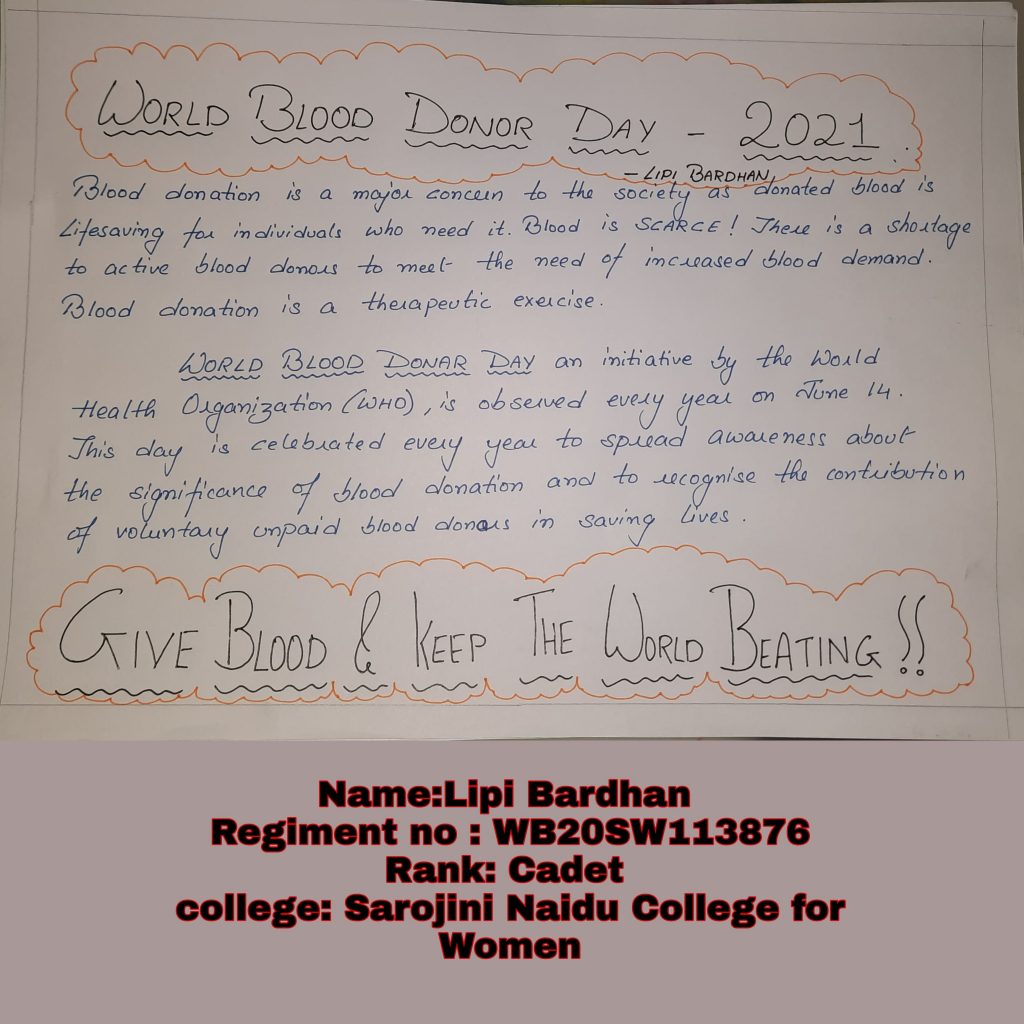 WORLD BLOOD DONOR DAY - 2021
- LIPI BARDHAN
Blood donation is a major concern to the society as donated blood is
Lifesaving for individuals who need it. Blood is SCARCE! There is a shortage
to active blood donors to meet the need of increased blood demand.
Blood donation is a therapeutic exercise.
WORLD BLOOD DONAR DAY an initiative by the World
Health Organization (WHO), is observed every year on June 14.
This day is celebrated every year to spread awareness about
the significance of blood donation and to recognise the contribution
of voluntary unpaid blood donors in saving lives.
GIVE BLOOD & KEEP THE WORLD BEATING!!
Name:Lipi Bardhan
Regiment no : WB20SW113876
Rank: Cadet
college: Sarojini Naidu College for
Women